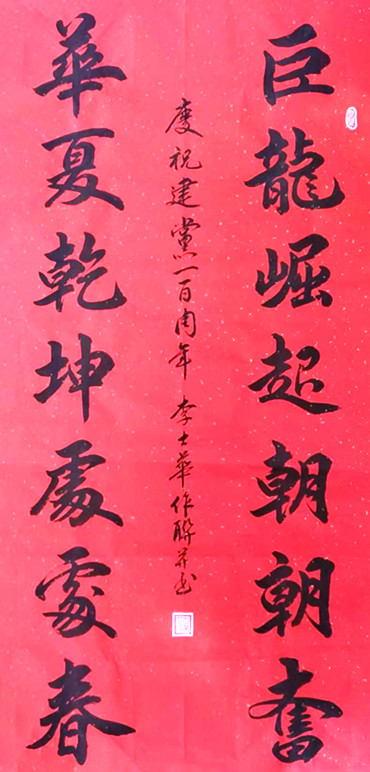 巨龍崛起朝朝奮
慶祝建黨一百周年 李士華作聯并书
華夏乾坤處處春